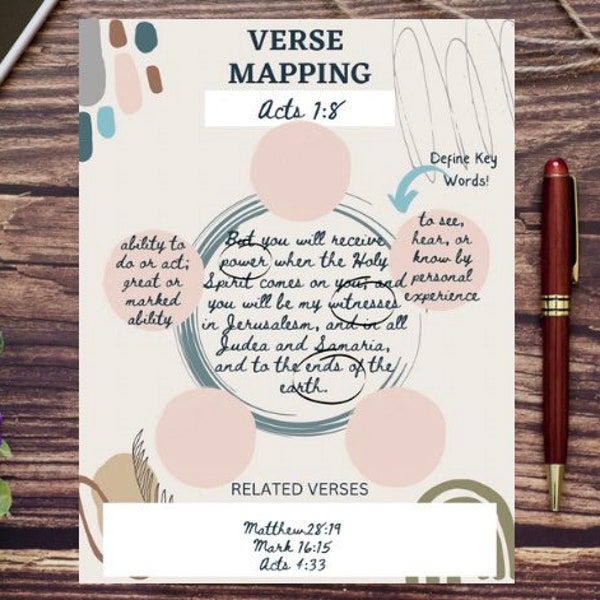 VERSE
MAPPING
Acts 1:8
Define Key
Words!
ability to
do or act;
great or
marked
ability
to see,
hear, or
know by
personal
experience
But you will receive
power when the Holy
Spirit comes on you; and
you will be my witnesses
in Jerusalesm, and in all
Judea and Samaria,
and to the ends of the
earth.
RELATED VERSES
Matthew28:19
Mark 16:15
Acts 4:33